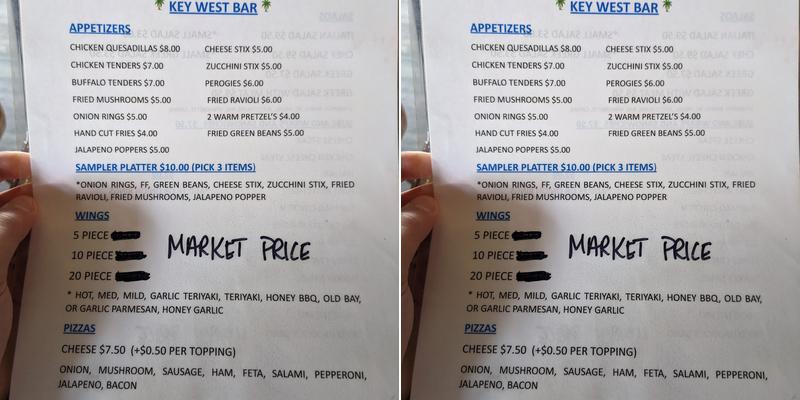 KEY WEST BAR
APPETIZERS
CHICKEN QUESADILLAS $8.00 CHEESE STIX $5.00
CHICKEN TENDERS $7.00 ZUCCHINI STIX $5.00
BUFFALO TENDERS $7.00 PEROGIES $6.00
FRIED MUSHROOMS $5.00 FRIED RAVIOLI $6.00
ONION RINGS $5.00 2 WARM PRETZEL'S $4.00
HAND CUT FRIES $4.00 FRIED GREEN BEANS $5.00
JALAPENO POPPERS $5.00
SAMPLER PLATTER $10.00 (PICK 3 ITEMS)
*ONION RINGS, FF, GREEN BEANS, CHEESE STIX, ZUCCHINI STIX, FRIED
RAVIOLI, FRIED MUSHROOMS, JALAPENO POPPER
WINGS
5 PIECE
10 PIECE MARKET PRICE
20 PIECE
* HOT, MED, MILD, GARLIC TERIYAKI, TERIYAKI, HONEY BBQ, OLD BAY,
OR GARLIC PARMESAN, HONEY GARLIC
PIZZAS
CHEESE $7.50 (+$0.50 PER TOPPING)
ONION, MUSHROOM, SAUSAGE, HAM, FETA, SALAMI, PEPPERONI,
JALAPENO, BACON
KEY WEST BAR
APPETIZERS
CHICKEN QUESADILLAS $8.00 CHEESE STIX $5.00
CHICKEN TENDERS $7.00 ZUCCHINI STIX $5.00
BUFFALO TENDERS $7.00 PEROGIES $6.00
FRIED MUSHROOMS $5.00 FRIED RAVIOLI $6.00
ONION RINGS $5.00 2 WARM PRETZEL'S $4.00
HAND CUT FRIES $4.00 FRIED GREEN BEANS $5.00
JALAPENO POPPERS $5.00
SAMPLER PLATTER $10.00 (PICK 3 ITEMS)
*ONION RINGS, FF, GREEN BEANS, CHEESE STIX, ZUCCHINI STIX, FRIED
RAVIOLI, FRIED MUSHROOMS, JALAPENO POPPER
WINGS
5 PIECE
10 PIECE MARKET PRICE
20 PIECE
* HOT, MED, MILD, GARLIC TERIYAKI, TERIYAKI, HONEY BBQ, OLD BAY,
OR GARLIC PARMESAN, HONEY GARLIC
PIZZAS
CHEESE $7.50 (+$0.50 PER TOPPING)
ONION, MUSHROOM, SAUSAGE, HAM, FETA, SALAMI, PEPPERONI,
JALAPENO, BACON